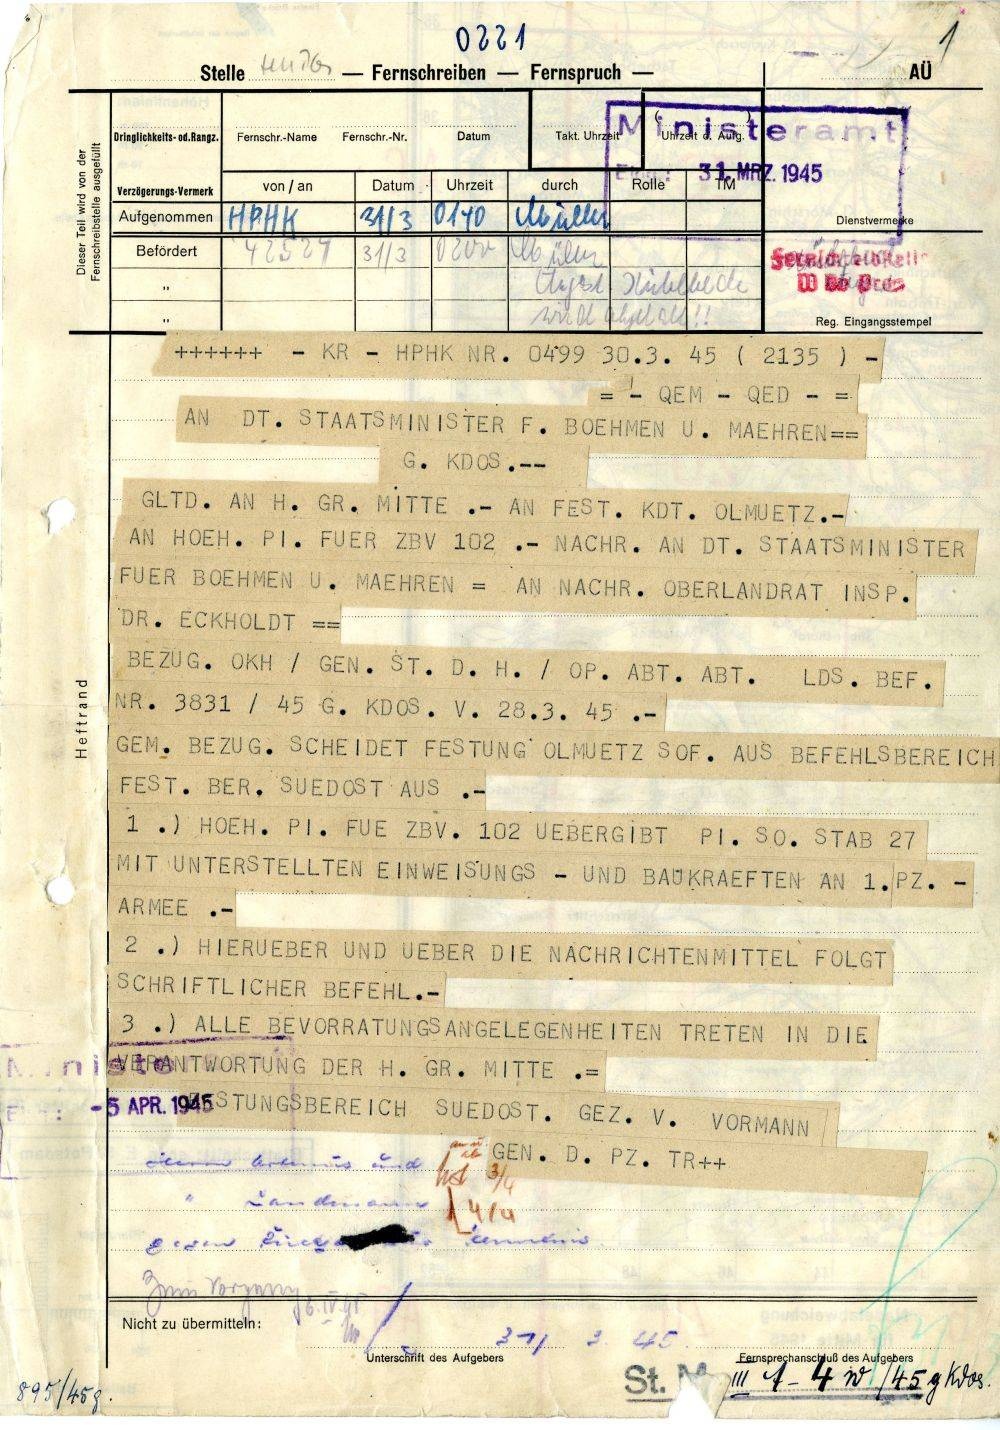 0221
1
Stelle — Fernschreiben — Fernspruch — AÜ
Dieser Teil wird von der
Fernschreibstelle ausgefüllt
Dringlichkeits-od.Rangz. Fernschr.-Name Fernschr.-Nr. Datum Takt. Uhrzeit Uhrzeit d. Aufg.
Ministeramt
31. MRZ. 1945
Verzögerungs-Vermerk von / an Datum Uhrzeit durch Rolle TM
Aufgenommen HPHK 31/3 0140 Müller
Dienstvermerke
Befördert 42527 31/3 0200 Müller
"
"
Reg. Eingangsstempel
++++++ - KR - HPHK NR. 0499 30.3. 45 ( 2135 ) -
= - QEM - QED - =
AN DT. STAATSMINISTER F. BOEHMEN U. MAEHREN==
G. KDOS.--
GLTD. AN H. GR. MITTE .- AN FEST. KDT. OLMUETZ.-
AN HOEH. PI. FUER ZBV 102 .- NACHR. AN DT. STAATSMINISTER
FUER BOEHMEN U. MAEHREN = AN NACHR. OBERLANDRAT INSP.
DR. ECKHOLDT ==
BEZUG. OKH / GEN. ST. D. H. / OP. ABT. ABT. LDS. BEF.
NR. 3831 / 45 G. KDOS. V. 28.3. 45 .-
GEM. BEZUG. SCHEIDET FESTUNG OLMUETZ SOF. AUS BEFEHLSBEREICH
FEST. BER. SUEDOST AUS .-
1 .) HOEH. PI. FUE ZBV. 102 UEBERGIBT PI. SO. STAB 27
MIT UNTERSTELLTEN EINWEISUNGS - UND BAUKRAEFTEN AN 1. PZ. -
ARMEE .-
2 .) HIERUEBER UND UEBER DIE NACHRICHTENMITTEL FOLGT
SCHRIFTLICHER BEFEHL.-
3 .) ALLE BEVORRATUNGSANGELEGENHEITEN TRETEN IN DIE
VERANTWORTUNG DER H. GR. MITTE .=
FESTUNGSBEREICH SUEDOST. GEZ. V. VORMANN
GEN. D. PZ. TR++
Heftrand
-5 APR. 1945
Herrn und 3/4
" Landmann 4/4
gegen
Zum Vorgang
6.IV.45
Nicht zu übermitteln:
31/ 3. 45.
Unterschrift des Aufgebers Fernsprechanschluß des Aufgebers
St. M. III 1 - 4 w /45 g Kdos.
895/45g.